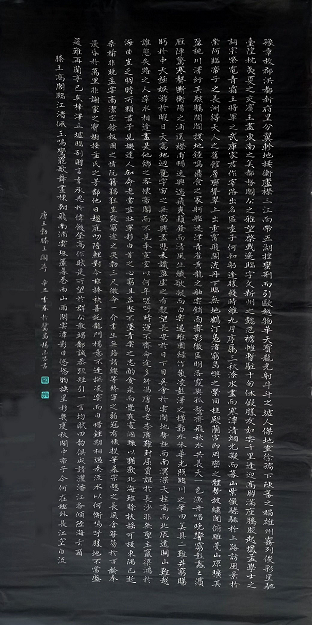 豫章故郡洪都新府星分翼軫地接衡廬襟三江而帶五湖控蠻荊而引甌越物華天寶龍光射牛斗之墟人傑地靈徐孺下陳蕃之榻雄州霧列俊彩星馳
臺隍枕夷夏之交賓主盡東南之美都督閻公之雅望棨戟遙臨宇文新州之懿範襜帷暫駐十旬休暇勝友如雲千里逢迎高朋滿座騰蛟起鳳孟學士之
詞宗紫電青霜王將軍之武庫家君作宰路出名區童子何知躬逢勝餞時維九月序屬三秋潦水盡而寒潭清煙光凝而暮山紫儼驂騑於上路訪風景於
崇阿臨帝子之長洲得天人之舊館層巒聳翠上出重霄飛閣流丹下臨無地鶴汀鳧渚窮島嶼之縈迴桂殿蘭宮列岡巒之體勢披繡闥俯雕甍山原曠其
盈視川澤紆其駭矚閭閻撲地鐘鳴鼎食之家舸艦迷津青雀黃龍之舳雲銷雨霽彩徹區明落霞與孤鶩齊飛秋水共長天一色漁舟唱晚響窮彭蠡之濱
雁陣驚寒聲斷衡陽之浦遙襟甫暢逸興遄飛爽籟發而清風生纖歌凝而白雲遏睢園綠竹氣凌彭澤之樽鄴水朱華光照臨川之筆四美具二難并窮睇
眄於中天極娛遊於暇日天高地迥覺宇宙之無窮興盡悲來識盈虛之有數望長安於日下目吳會於雲間地勢極而南溟深天柱高而北辰遠關山難越
誰悲失路之人萍水相逢盡是他鄉之客懷帝閽而不見奉宣室以何年嗟乎時運不齊命途多舛馮唐易老李廣難封屈賈誼於長沙非無聖主竄梁鴻於
海曲豈乏明時所賴君子見機達人知命老當益壯寧移白首之心窮且益堅不墜青雲之志酌貪泉而覺爽處涸轍以猶歡北海雖賒扶搖可接東隅已逝
桑榆非晚孟嘗高潔空餘報國之情阮籍猖狂豈效窮途之哭勃三尺微命一介書生無路請纓等終軍之弱冠有懷投筆慕宗慤之長風舍簪笏於百齡奉
晨昏於萬里非謝家之寶樹接孟氏之芳鄰他日趨庭叨陪鯉對今茲捧袂喜託龍門楊意不逢撫凌雲而自惜鍾期既遇奏流水以何慚嗚呼勝地不常盛
筵難再蘭亭已矣梓澤丘墟臨別贈言幸承恩於偉餞登高作賦是所望於群公敢竭鄙誠恭疏短引一言均賦四韻俱成請灑潘江各傾陸海云爾
滕王高閣臨江渚佩玉鳴鸞罷歌舞畫棟朝飛南浦雲珠簾暮捲西山雨閒雲潭影日悠悠物換星移幾度秋閣中帝子今何在檻外長江空自流
唐王勃滕王閣序